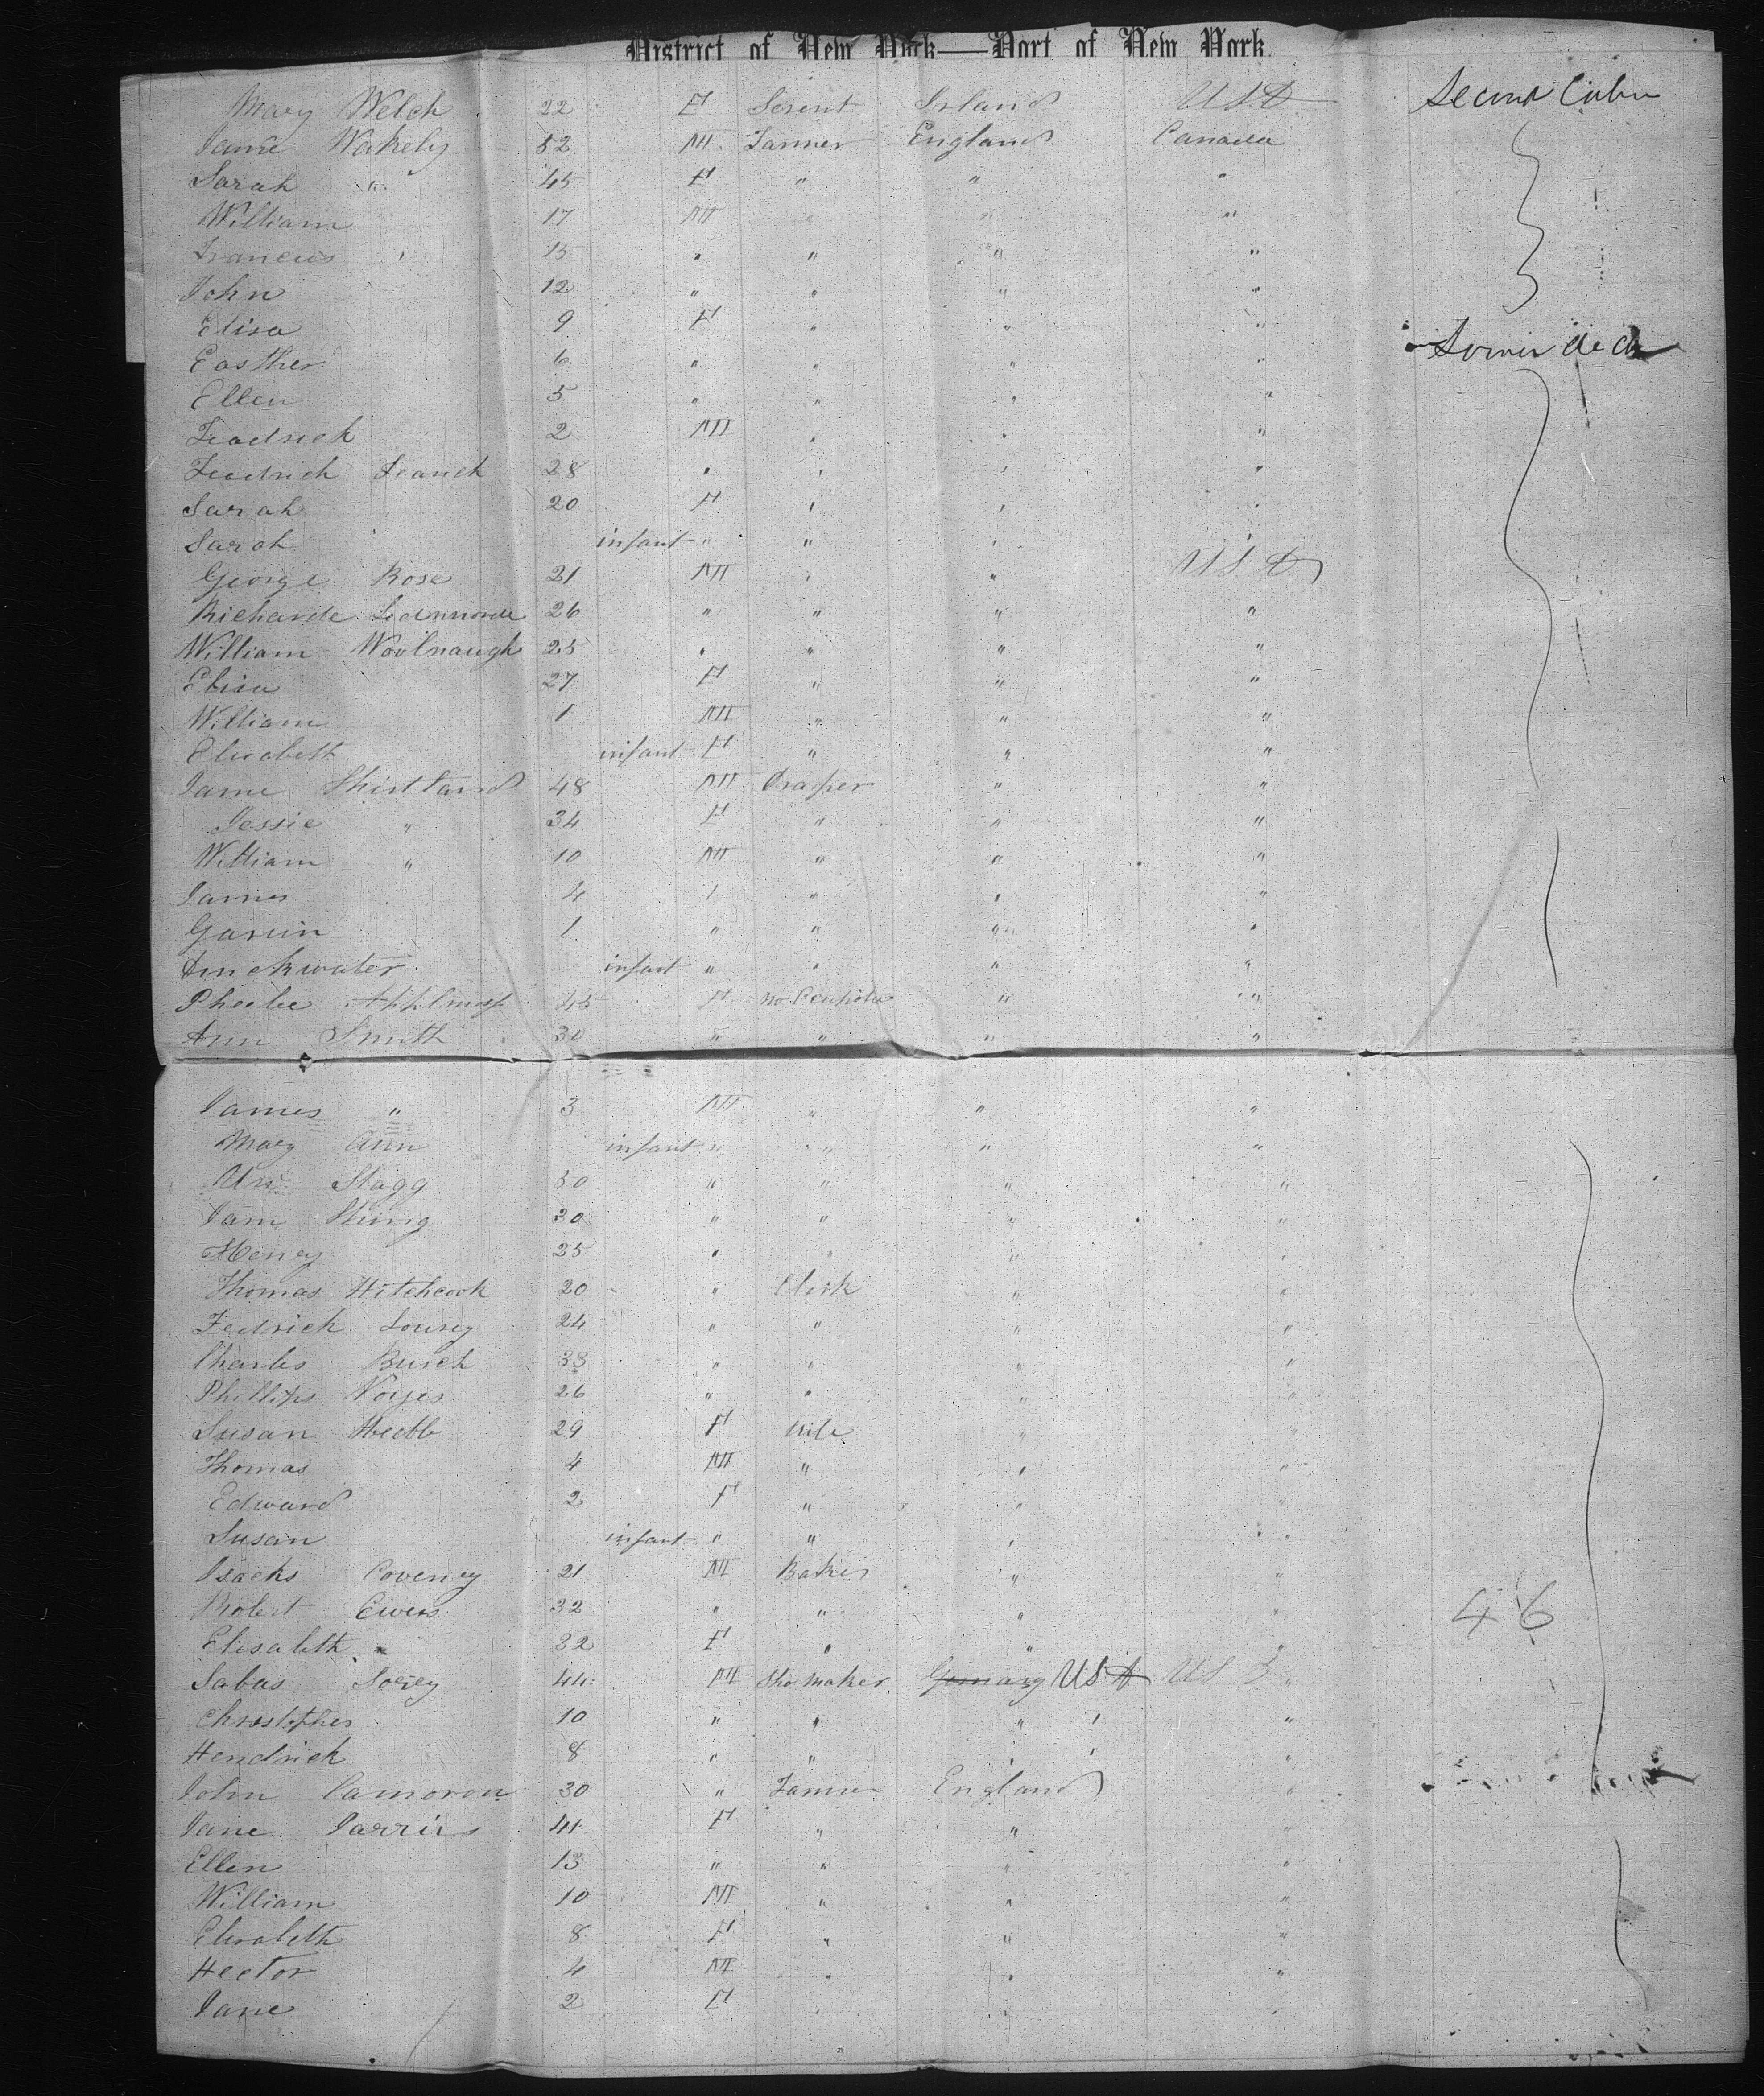 District of New York—Port of New York.
Mary Welch 22 F Servent Irland USA Second Cabin
Jame Wakely 52 M Farmer England Canada
Sarah " 45 F " " "
William 17 M " " "
Francis 15 " " " "
John 12 " " " "
Elisa 9 F " " "
Easther 6 " " " " Lower deck
Ellen 5 " " " "
Fradrick 2 M " " "
Feadrich Franck 28 " " " "
Sarah 20 F " " "
Sarah infant " " " "
George Rose 21 M " " USA
Richarde 26 " " " "
William Woolnaugh 25 " " " "
Elisa 27 F " " "
William 1 M " " "
Elisabeth infant F " " "
Jame Shirtland 48 M Draper " "
Jessie " 34 F " " "
William " 10 M " " "
James 4 " " " "
Garvin 1 " " " "
Drinckwater infant " " " "
Pheebe 45 F " "
Ann Smith 30 " " " "
James " 3 M " " "
Mary Ann infant " " " "
Stagg 50 " " " "
Jam String 30 " " " "
Henry 25 " " " "
Thomas Hitchcook 20 " Clerk " "
Fedrick Lousey 24 " " " "
Charles Burch 33 " " " "
Phillips Noyes 26 " " " "
Susan Heebb 29 F Wife " "
Thomas 4 M " " "
Edward 2 F " " "
Susan infant " " " "
Isacks Coveney 21 M Baker " "
Robert Ewers 32 " " " " 46
Elisabeth " 32 F " " "
Sabas 44 M Shomaker Gemany USA US "
Christopher 10 " " " "
Hendrick 8 " " " "
John Camoron 30 " Farmer England "
Jane Jarris 41 F " " "
Ellen 13 " " " "
William 10 M " " "
Elisabeth 8 F " " "
Hector 4 M " " "
Jane 2 F " " "